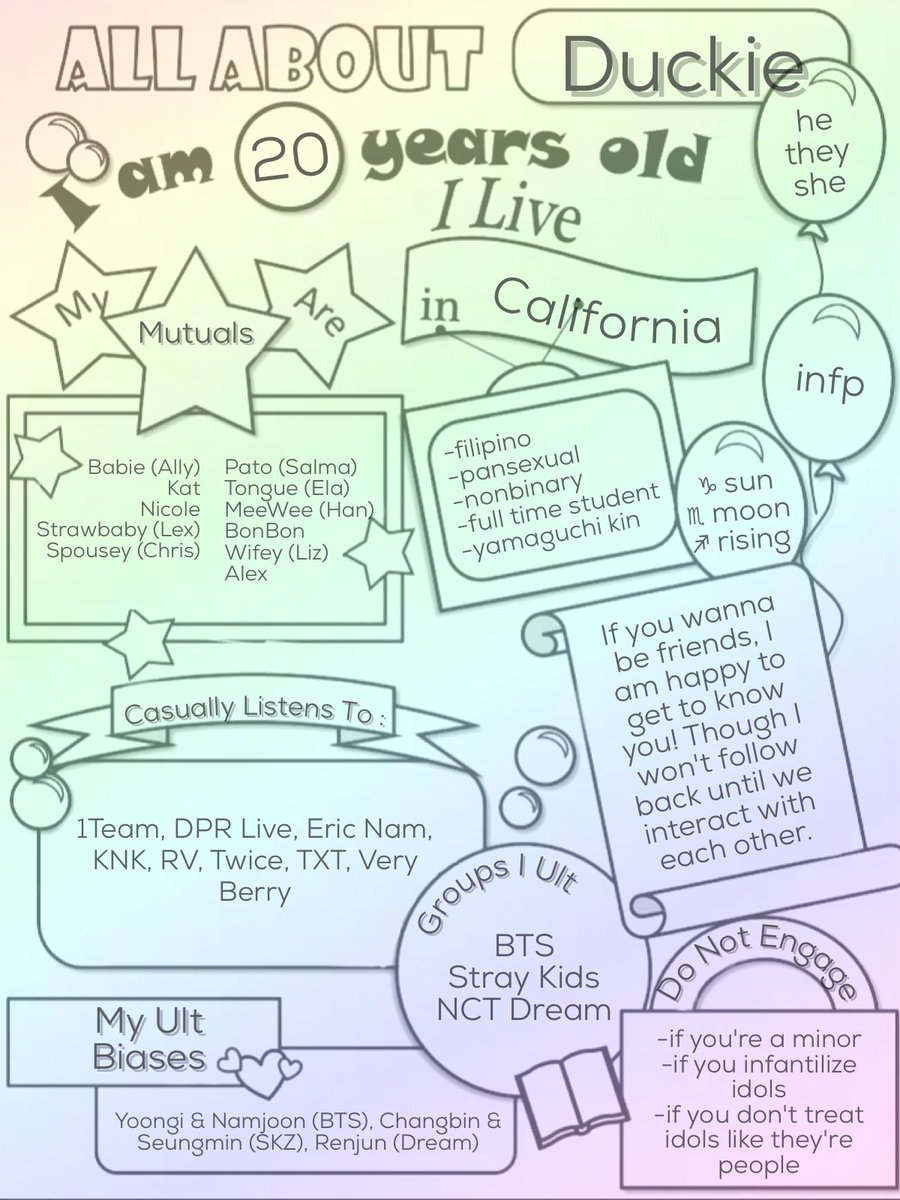 ALL ABOUT Duckie
I am 20 years old
he
they
she
I Live
in California
My Mutuals Are
infp
Babie (Ally)
Kat
Nicole
Strawbaby (Lex)
Spousey (Chris)
Pato (Salma)
Tongue (Ela)
MeeWee (Han)
BonBon
Wifey (Liz)
Alex
-filipino
-pansexual
-nonbinary
-full time student
-yamaguchi kin
♑︎ sun
♏︎ moon
♐︎ rising
If you wanna
be friends, I
am happy to
get to know
you! Though I
won't follow
back until we
interact with
each other.
Casually Listens To :
1Team, DPR Live, Eric Nam,
KNK, RV, Twice, TXT, Very
Berry
Groups I Ult
BTS
Stray Kids
NCT Dream
Do Not Engage
-if you're a minor
-if you infantilize
idols
-if you don't treat
idols like they're
people
My Ult
Biases
Yoongi & Namjoon (BTS), Changbin &
Seungmin (SKZ), Renjun (Dream)